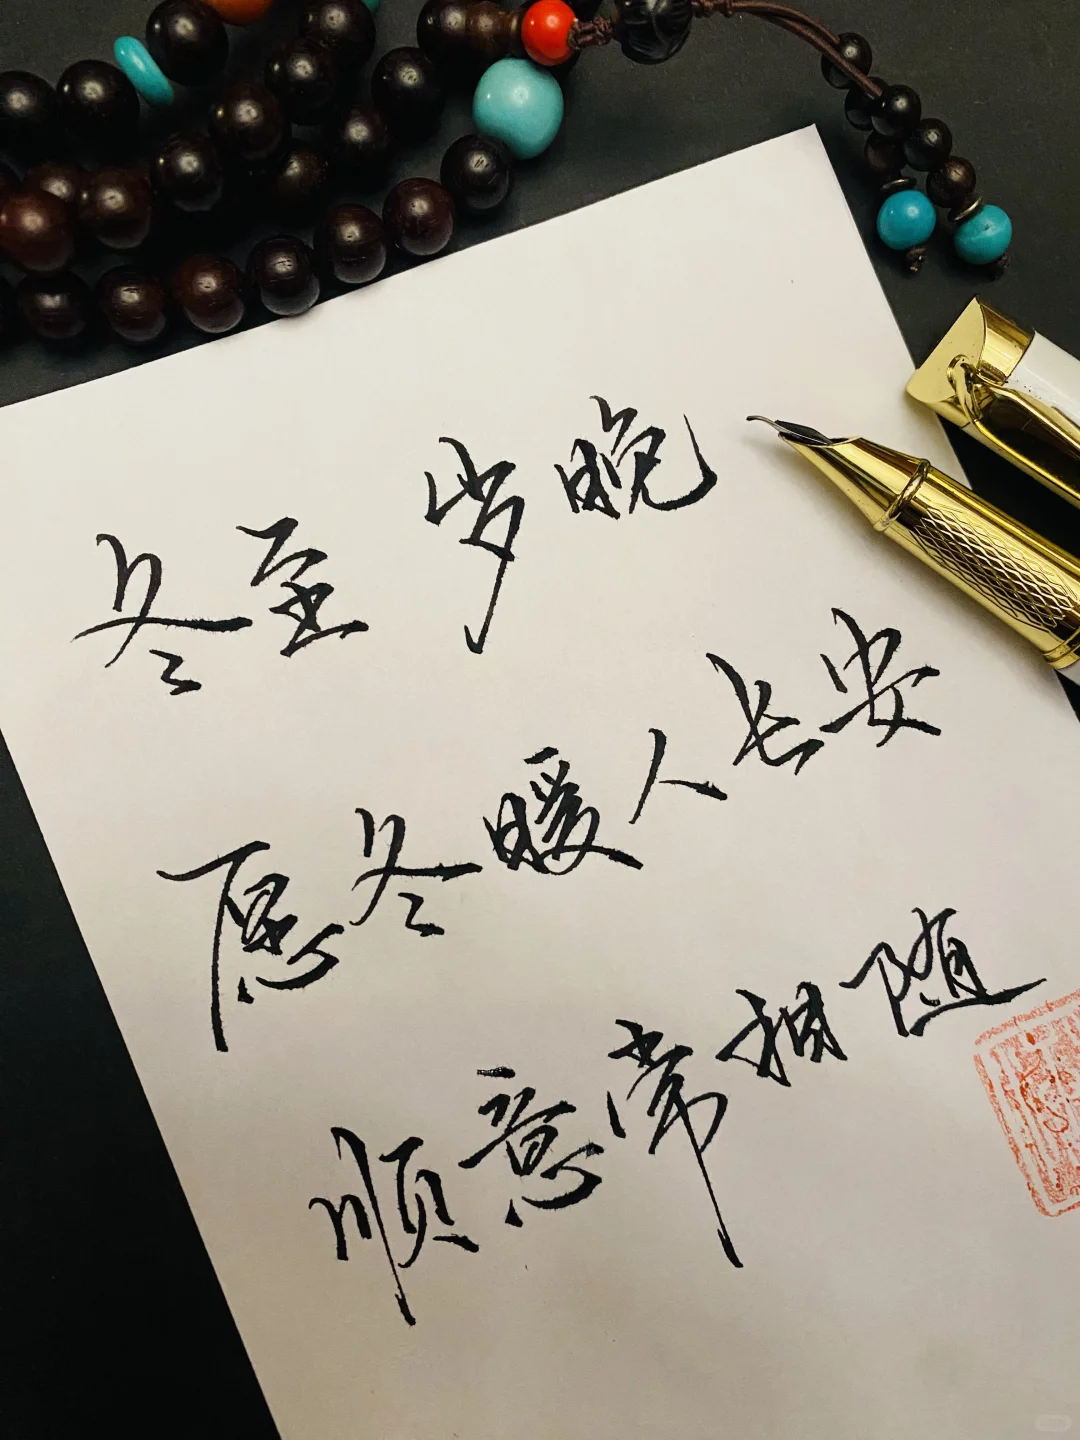 冬至 岁晚
愿冬暖人长安
顺意常相随